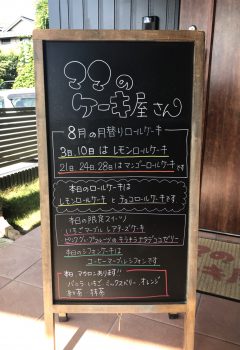 ママの
ケーキ屋さん
8月の月替りロールケーキ
3日、10日はレモンロールケーキ
21日、24日、28日はマンゴーロールケーキです
本日のロールケーキは
レモンロールケーキ と チョコロールケーキです
本日の限定スイーツ
いちごマーブルレアチーズケーキ
ピンクグレープフルーツの
本日のシフォンケーキは
コーヒーマーブルシフォンです
本日 マカロンあります!!
バニラ、いちご、ミックスベリー、オレンジ
抹茶